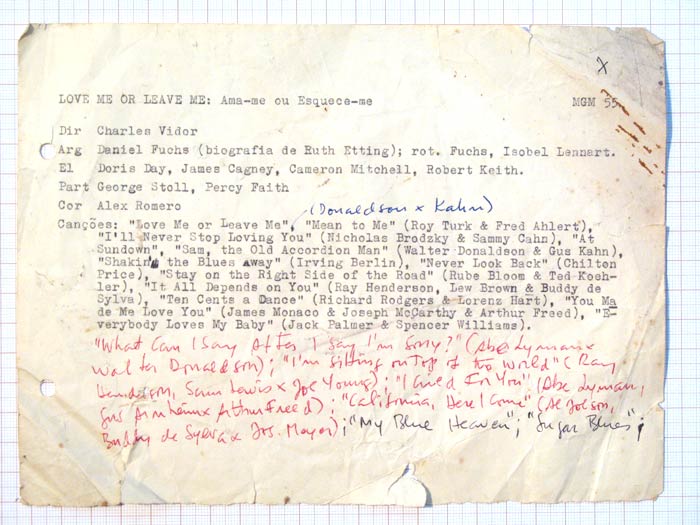 X
LOVE ME OR LEAVE ME: Ama-me ou Esquece-me MGM 55
Dir Charles Vidor
Arg Daniel Fuchs (biografia de Ruth Etting); rot. Fuchs, Isobel Lennart.
El Doris Day, James Cagney, Cameron Mitchell, Robert Keith.
Part George Stoll, Percy Faith
Cor Alex Romero
(Donaldson x Kahn)
Canções: "Love Me or Leave Me", "Mean to Me" (Roy Turk & Fred Ahlert),
"I'll Never Stop Loving You" (Nicholas Brodzky & Sammy Cahn), "At
Sundown", "Sam, the Old Accordion Man" (Walter Donaldson & Gus Kahn),
"Shaking the Blues Away" (Irving Berlin), "Never Look Back" (Chilton
Price), "Stay on the Right Side of the Road" (Rube Bloom & Ted Koeh-
ler), "It All Depends on You" (Ray Henderson, Lew Brown & Buddy de
Sylva), "Ten Cents a Dance" (Richard Rodgers & Lorenz Hart), "You Ma
de Me Love You" (James Monaco & Joseph McCarthy & Arthur Freed), "E-
verybody Loves My Baby" (Jack Palmer & Spencer Williams).
"What Can I Say After I Say I'm Sorry?" (Abe Lyman x
Walter Donaldson); "I'm Sitting on Top of the World" (Ray
Henderson, Sam Lewis x Joe Young); "I Cried For You" (Abe Lyman,
Gus Arnheim x Arthur Freed); "California, Here I Come" (Al Jolson,
Buddy de Sylva x Jos. Mayer); "My Blue Heaven"; "Sugar Blues";